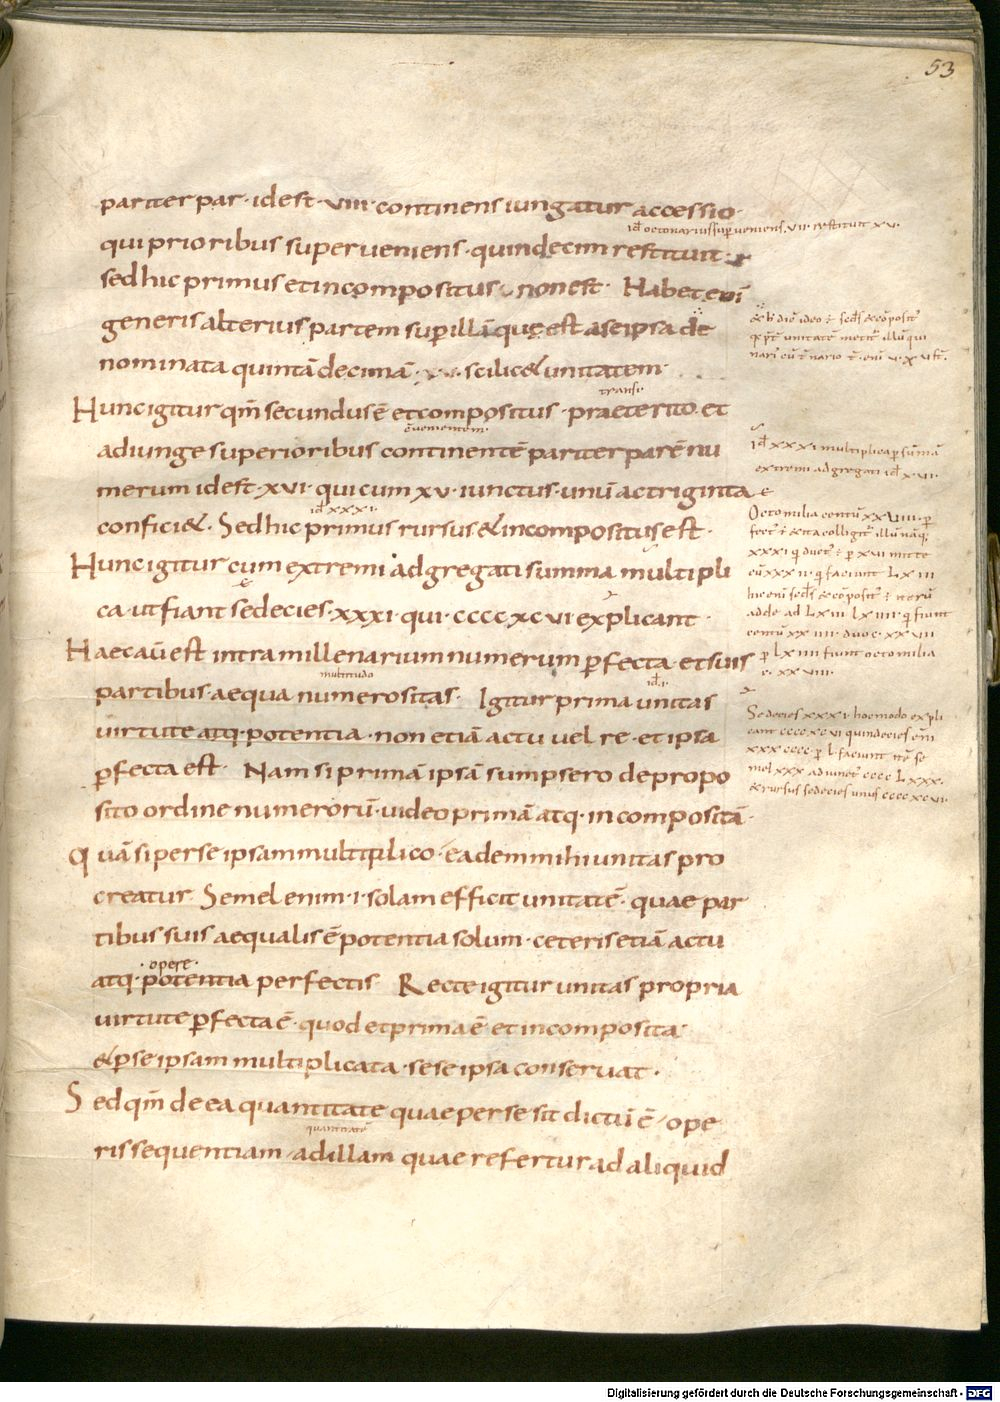 53
pariter par · idest · VIII · continens iungatur accessio ·
id octonarius superveniens · VII · restituit XV ·
qui prioribus superveniens · quindecim restituit ·
sed hic primus et incompositus · non est · Habet eni
generis alterius partem sup illā que est a se ipsa de
nominata quintādecimā · XV · scilic& unitatem ·
transe
Hunc igitur qm̄ secundus ē et compositus · praeterito et
adiunge superioribus continentē pariter parē nu
merum idest · XVI · qui cum XV · iunctus · unū ac triginta
id XXXI ·
confici& · Sed hic primus rursus & incompositus est ·
Hunc igitur cum extremi adgregati summa multipli
ca · ut fiant sedecies · XXXI · qui · CCCC XC VI explicant ·
Haec aū est intra millenarium numerum p̄fecta · et suis
multitudo
id · I ·
partibus · aequa numerositas · Igitur prima unitas
virtute atq · potentia · non etiā actu vel re · et ipsa
p̄fecta est · Nam si primā ipsā sumpsero de propo
sito ordine numerorū · video primā atq · incompositā ·
Quā si per se ipsam multiplico · eadem mihi unitas pro
creatur · Semel enim · I · solam efficit unitatē · quae par
tibus suis aequalis ē potentia solum · ceteris etiā actu
· opere ·
atq · potentia perfectis · Recte igitur unitas propria
virtute p̄fecta ē · quod et prima ē et incomposita ·
& p se ipsam multiplicata · sese ipsa conservat ·
Sed qm̄ de ea quantitate quae per se sit dictū ē · ope
quantitatē
ris sequentiam · ad illam quae refertur ad aliquid
id XXXI multiplica p summā
extremi adgregati id X · VI ·
Octo milia centū XX VIII · p
XXXI
Sedecies XXXI · hoc modo expli
cant CCCC XC VI quindecies eni
XXX CCCC
mel XXX adiunct CCCC L XXX ·
& rursus sedecies unus CCCC XC VI ·
Digitalisierung gefördert durch die Deutsche Forschungsgemeinschaft - DFG